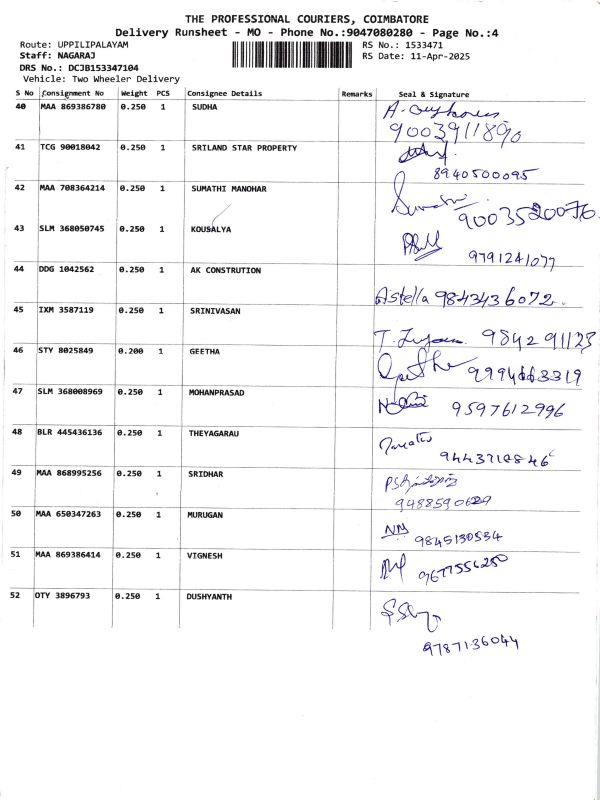 THE PROFESSIONAL COURIERS, COIMBATORE
Delivery Runsheet - MO - Phone No.:9047080280 - Page No.:4
Route: UPPILIPALAYAM RS No.: 1533471
Staff: NAGARAJ RS Date: 11-Apr-2025
DRS No.: DCJB153347104
Vehicle: Two Wheeler Delivery
S No Consignment No Weight PCS Consignee Details Remarks Seal & Signature
40 MAA 869386780 0.250 1 SUDHA
9003911890
41 TCG 90018042 0.250 1 SRILAND STAR PROPERTY
8940500095
42 MAA 708364214 0.250 1 SUMATHI MANOHAR
9003520076
43 SLM 368050745 0.250 1 KOUSALYA
9791241077
44 DDG 1042562 0.250 1 AK CONSTRUTION
Astella 9843436072
45 IXM 3587119 0.250 1 SRINIVASAN
984291123
46 STY 8025849 0.200 1 GEETHA
Geetha 9994663319
47 SLM 368008969 0.250 1 MOHANPRASAD
9597612996
48 BLR 445436136 0.250 1 THEYAGARAU
9443710846
49 MAA 868995256 0.250 1 SRIDHAR
50 MAA 650347263 0.250 1 MURUGAN
NM 9845130534
51 MAA 869386414 0.250 1 VIGNESH
9677556250
52 OTY 3896793 0.250 1 DUSHYANTH
9787136044